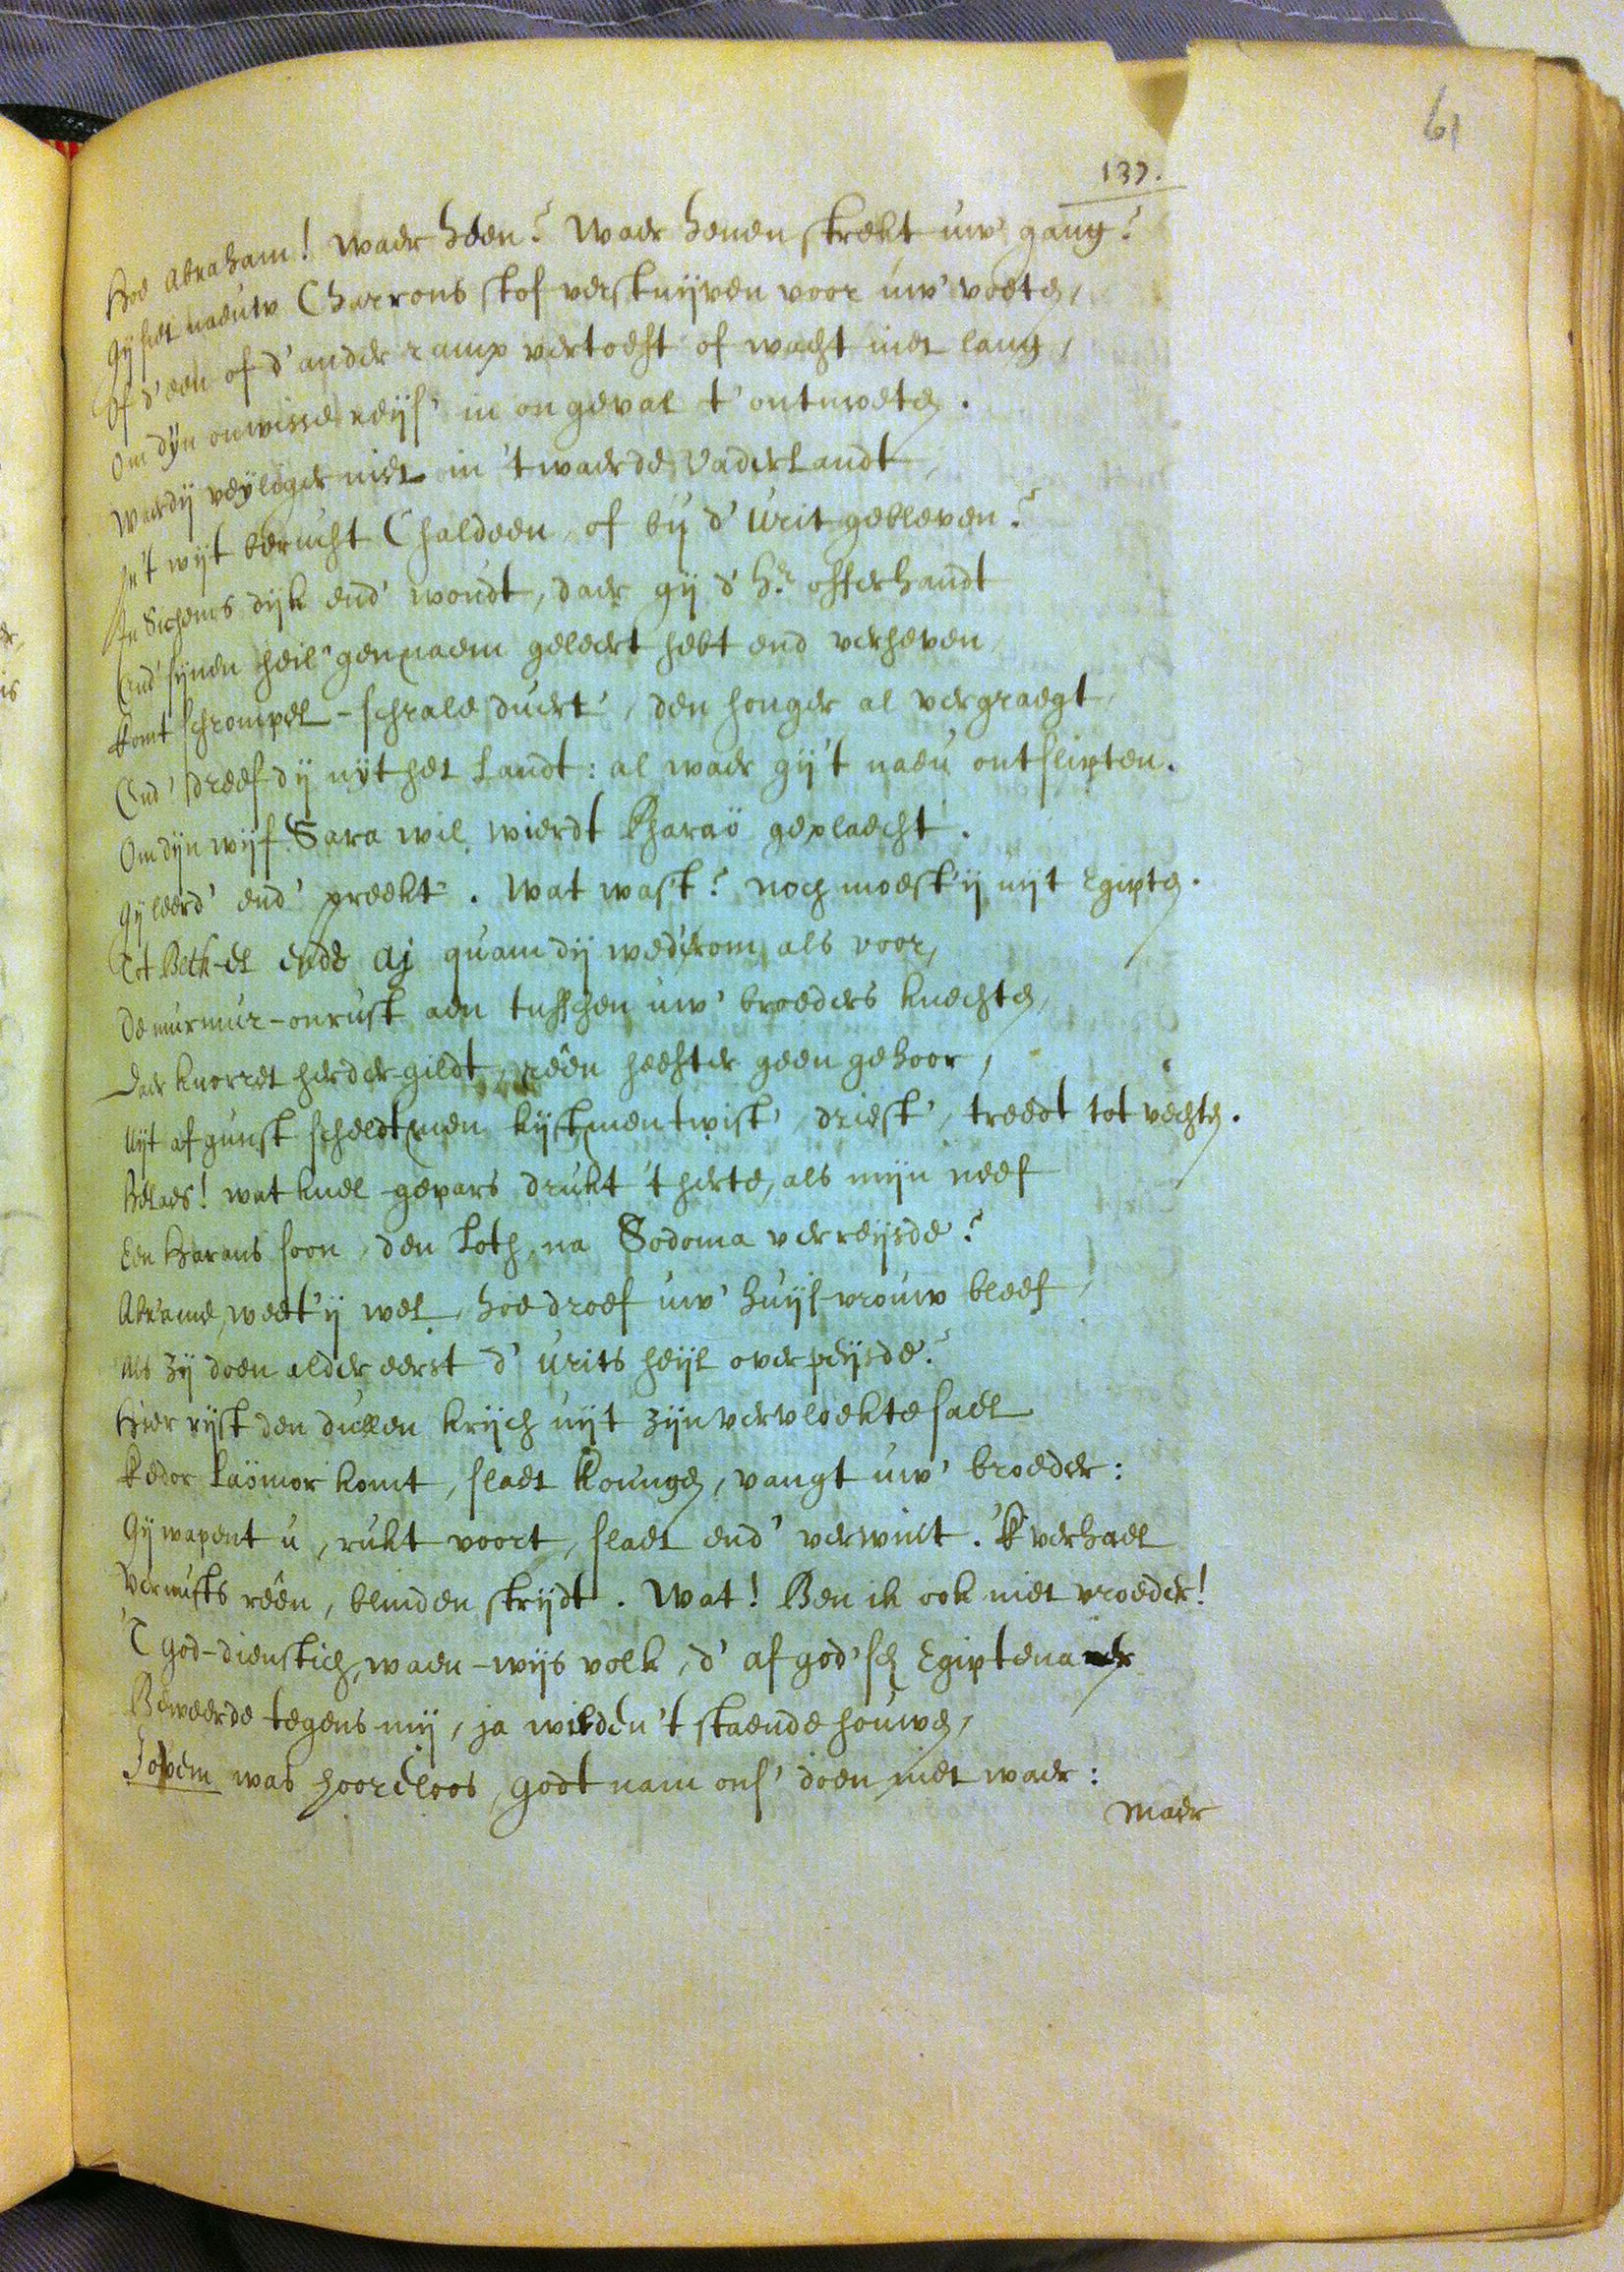 61
137.
Hoe Abraham! waer heen? Waer henen strekt uw' gang?
Gij siet naeuw Charrons stof verstuijven voor uw' voeten,
Of d' een of d' ander ramp vertoeft of wacht niet lang,
Om dijn onwisse reijs' in ongeval t' ontmoeten.
Waerdij veyliger niet in 't waerde Vaderlandt,
In 't wijt berucht Chaldeen, of bij d' Urit gebleven?
In Sichems dijk end' woudt, daer gij d' Hr. offerhandt
End' sijnen heil'gen naem geleert hebt end verheven,
Komt schrompel-schrale duert', den honger al vergraegt,
End' dreef dij uyt het Landt: al waer gij't naeu ontslipten.
Om dijn wijf Sara wil wierdt Pharaö geplaecht.
Gij leerd' end' preekt'. Wat wast? noch moest ij uijt Egipten.
Tot Beth-el ende Aj quam dij wederom, als voor,
De murmur-onrust aen tusschen uw' broeders knechten,
Daer knorret herder-gildt, reên heefter geen gehoor,
Uijt afgunst scheldtmen kijftmen twist', driest', treedt tot vechten.
Helaes! wat knel-gepars drukt 't herte, als mijn neef
Een Harans soon, den Loth, na Sodoma verreijsde?
Abrame, weet'ij wel, hoe droef uw' huijsvrouw bleef,
Als zij doen alder eerst d' Urits heijl overpeijsde?
Hier rijst den dullen krijch uijt zijn vervloekte sael
Kedor Laömor komt, slaet Koningen, vangt uw' broeder:
Gij wapent u, rukt voort, slaet end' verwint. 'K verhael
Vernufts reên, blinden strijdt. Wat! Ben ik ook niet vroeder!
'T god-dienstich, waen-wijs volk, d' afgod'sch Egiptenaer
Beweerde tegens mij, ja wilden 't staende houwen,
Jovem was hooreloos, Godt nam ons' doen niet waer:
Maer